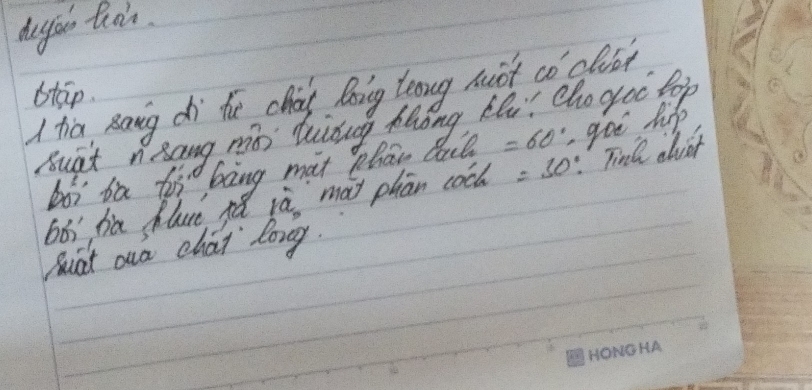 truyền hơn.
btập.
1 tia sáng đi từ chất lỏng trong suốt có chiết
suất n sang môi trường không khí. Cho góc hợp
bởi tia tới bằng mặt phân cách = 60°, góc hợp
bởi tia khúc xạ và mặt phân cách = 30°. Tính chiết
suất của chất lỏng.
HONG HA